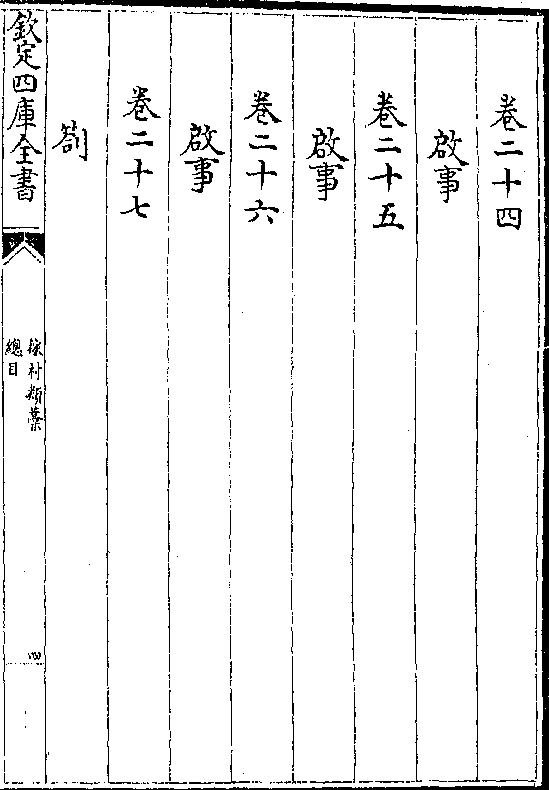 卷二十四
啟事
卷二十五
啟事
卷二十六
啟事
卷二十七
劄
欽定四庫全書
稼村類藁
總目
四